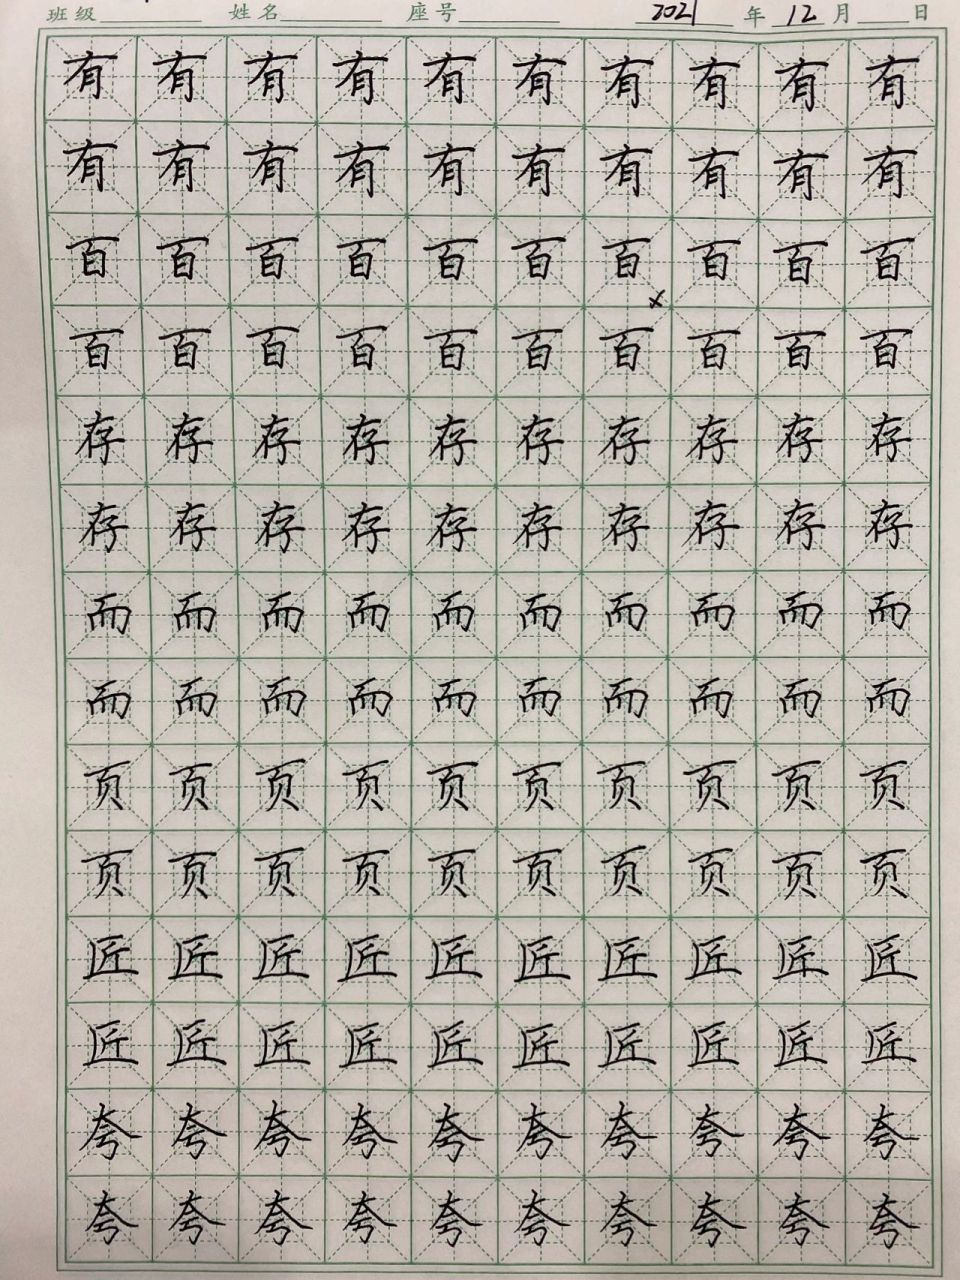 班级 姓名 座号 2021 年 12 月 日
有 有 有 有 有 有 有 有 有 有
有 有 有 有 有 有 有 有 有 有
百 百 百 百 百 百 百 百 百 百
×
百 百 百 百 百 百 百 百 百 百
存 存 存 存 存 存 存 存 存 存
存 存 存 存 存 存 存 存 存 存
而 而 而 而 而 而 而 而 而 而
而 而 而 而 而 而 而 而 而 而
页 页 页 页 页 页 页 页 页 页
页 页 页 页 页 页 页 页 页 页
匠 匠 匠 匠 匠 匠 匠 匠 匠 匠
匠 匠 匠 匠 匠 匠 匠 匠 匠 匠
夸 夸 夸 夸 夸 夸 夸 夸 夸 夸
夸 夸 夸 夸 夸 夸 夸 夸 夸 夸